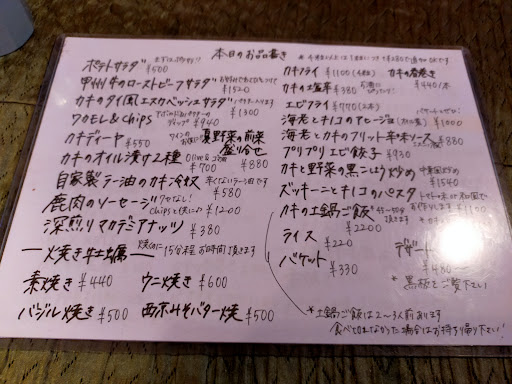 本日のお品書き
ポテトサラダ ¥500
甲州牛のローストビーフサラダ ¥1520
カキのタイ風エスカベッシュサラダ ¥1300
ワカモレ&chips ¥940
カキディーヤ ¥550
夏野菜の前菜盛り合せ ¥880
カキのオイル漬け2種 ¥700
自家製ラー油のカキ冷奴 辛くないラー油です ¥580
鹿肉のソーセージ クセなし! chipsと供に ¥1200
深煎りマカデミアナッツ ¥380
焼き牡蠣 焼めに15分程お時間頂きます
素焼き ¥440 ウニ焼き ¥600
バジル焼き ¥500 西京みそバター焼 ¥500
カキフライ ¥1100(4個) カキの春巻き ¥440/本
カキの塩辛 ¥380
エビフライ ¥770(2本)
海老とキノコのアヒージョ ¥1000
海老とカキのフリット辛味ソース ¥880
プリプリエビ餃子 ¥930
カキと野菜の黒こしょう炒め ¥1540
ズッキーニとキノコのパスタ ¥1100
カキの土鍋ご飯 ¥2200
ライス ¥220
バケット ¥330
デザート ¥480
*黒板をご覧下さい
*土鍋ご飯は2〜3人前あります
食べ切れなかった場合はお持ち帰り下さい!